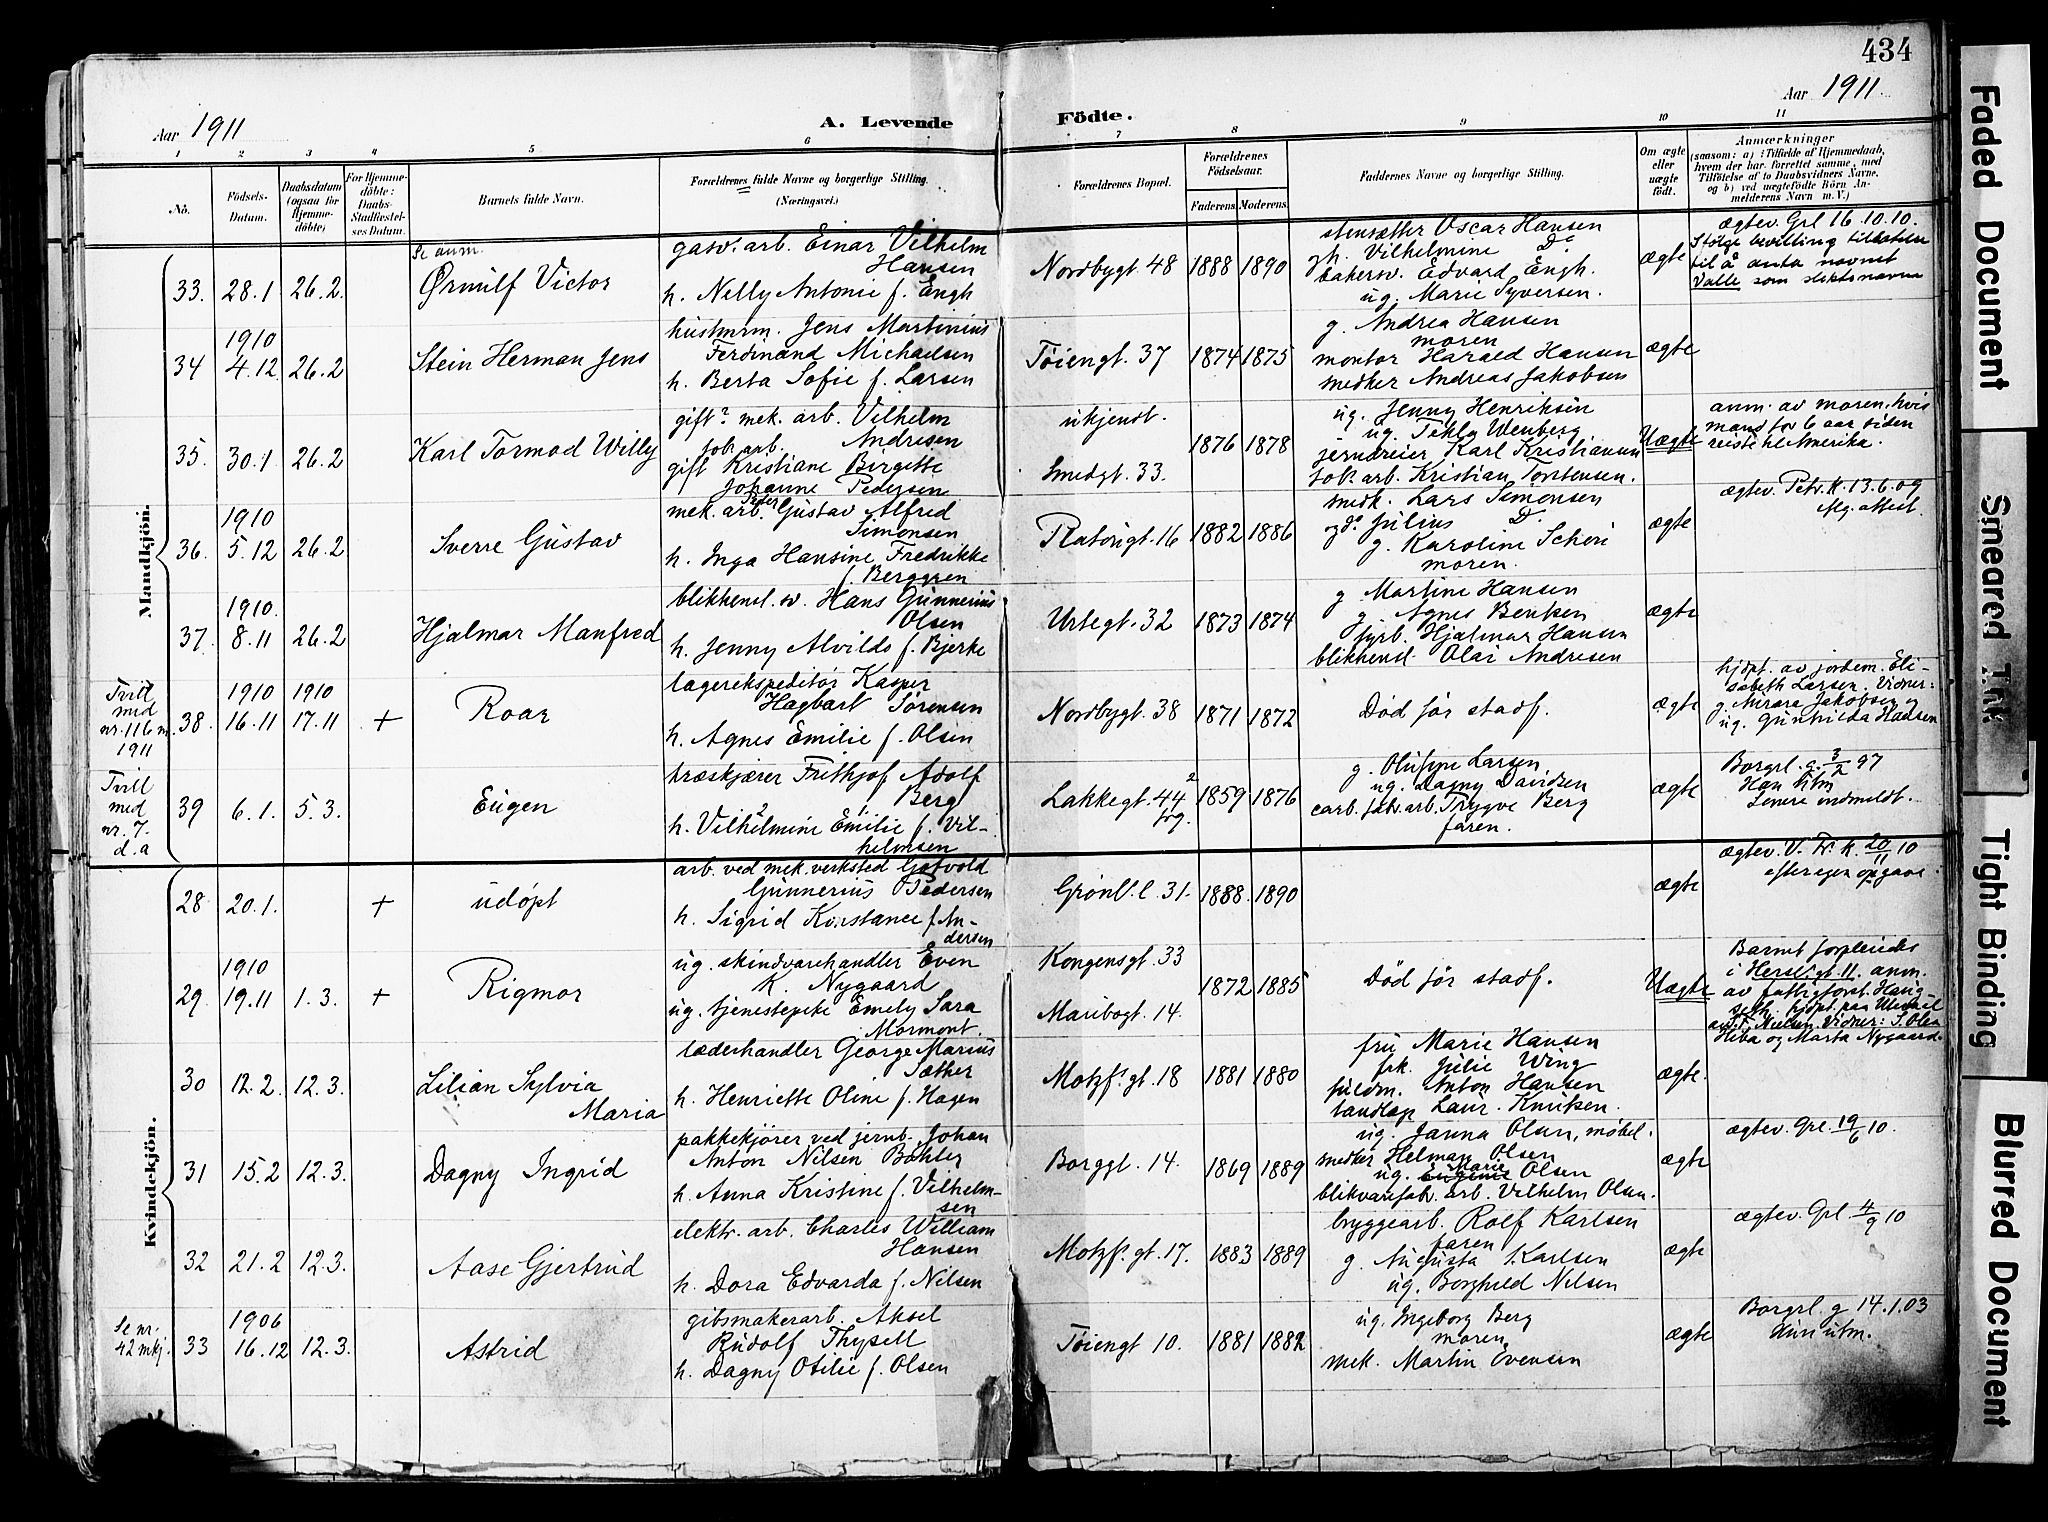 434
Aar 1911
Aar 1911
A. Levende Födte.
1 2 3 4 5 6 7 8 9 10 11
No.
Födsels-
Datum.
Daabsdatum
(ogsaa for
Hjemme-
döbte)
For Hjemme-
döbte:
Daabs-
Stadfæstel-
ses Datum.
Barnets fulde Navn.
Forældrenes fulde Navne og borgerlige Stilling.
(Næringsvei.)
Forældrenes Bopæl.
Forældrenes
Födselsaar.
Faderens. Moderens.
Faddernes Navne og borgerlige Stilling.
Om ægte
eller
uægte
födt.
Anmærkninger
(saasom: a) i Tilfælde af Hjemmedaab,
hvem der har forrettet samme, med
Tilföielse af to Daabsvidners Navne,
og b) ved uægtefödte Börn An-
melderens Navn m. V.)
Mandkjön.
Se anm.
33. 28.1 26.2. Ørnulf Victor
gasv. arb. Einar Vilhelm
Hansen
h. Nelly Antonie f. Engh
Nordbygt. 48 1888 1890
stensætter Oscar Hansen
gh. Vilhelmine Do
bakersv. Edvard Engh.
ug. Marie Syversen.
ægte
ægtev. Grl 16.10.10.
bevilling
til å anta navnet
Valle som slektsnavn
1910
34 4.12 26.2 Stein Herman Jens
husmm. Jens Martinius
Ferdinand Michaelsen
h. Berta Sofie f. Larsen
Töiengt. 37 1874 1875
g. Andrea Hansen
moren
montør Harald Hansen
snedker Andreas Jakobsen
ægte
35. 30.1 26.2 Karl Tormod Willy
gift? mek. arb. Vilhelm
Andresen
fab. arb.
gift Kristiane Birgitte
Johanne Pedersen
ukjendt.
Smedgt. 33.
1876 1878
ug. Jenny Henriksen
ug. Tekla Wenberg
jerndreier Karl Kristiansen
fab. arb. Kristian Torstensen.
Uægte
anm. av moren, hvis
mand for 6 aar siden
reiste til Amerika.
1910
36. 5.12 26.2 Sverre Gustav
mek. arb. Peder Gustav Alfred
Simonsen
h. Inga Hansine Fredrikke
f. Berggren
Platousgt. 16 1882 1886
snedk. Lars Simonsen
og do Julius D.
g. Karoline
moren.
ægte
ægtev. Petr. k. 13.6.09
1910.
37. 8.11 26.2 Hjalmar Manfred
blikkensl. sv. Hans Gunnerius
Olsen
h. Jenny Alvilds f. Bjerke
Urtegt. 32 1873 1874
g. Martine Hansen
g. Agnes Bentsen
fyrb. Hjalmar Hansen
blikkensl. Olai Andresen
ægte
Tvill
med
nr. 116 m.
1911
1910 1910
38. 16.11 17.11 + Roar
lagerekspeditør Kasper
Hagbart Sørensen
h. Agnes Emilie f. Olsen
Nordbygt. 38 1871 1872
Död før stadf.
ægte
hjdpt. av jordem. Eli-
sabeth Larsen. Vidner:
g. Jakobsen og
ug. Gunhilda Hansen
Tvill
med
nr. 7.
d.a
39 6.1. 5.3. Eugen
træskjærer Frithjof Adolf
Berg
h. Vilhelmine Emilie f. Vil-
helmsen
Lakkegt. 44 1859 1876
g. Olufine Larsen
ug. Dagny Davidsen
carb. fabr. arb. Trygve Berg
faren.
ægte
Borgrl. g. 3/2 97
Han utm
Senere indmeldt.
Kvindekjön.
28 20.1. + udöpt
arb. ved mek. verksted Gotvold
Gunnerius Pedersen
h. Sigrid Konstance f. An-
dersen
Grönl. l. 31. 1888. 1890
ægte
ægtev. V. Fr. k. 20/11 10
efter egen opgave.
1910
29. 19.11 1.3. + Rigmor
ug. skindvarehandler Even
K. Nygaard
ug. tjenestepike Emely Sara
Mormont.
Kongensgt. 33
Maribogt. 14.
1872 1885
Död før stadf.
Uægte
Barnet forpleiedes
i Herslebgt. 11. anm.
av fattigforst. Haug-
seth. hjdpt.
Nielsen. Vidner: S. Olea
og Marta Nygaard.
30 12.2. 12.3. Lilian Sylvia
Maria
læderhandler George Marius
Sæther
h. Henriette Oline f. Hagen
Motzf. gt. 18 1881 1880
fru Marie Hansen
frk. Julie Wing
fuldm. Anton Hansen
tandlæge Laur. Knutsen.
ægte.
31 15.2 12.3. Dagny Ingrid
pakkekjører ved jernb. Johan
Anton Nilsen Bøhler
h. Anna Kristine f. Vilhelm-
sen
Borggt. 14. 1869 1889
ug. Janna Olsen, møbel-
snedker Helman Olsen
ug. Marie Olsen
blikvarefab. arb. Vilhelm Olsen.
ægte
ægtev. Grl. 19/6 10.
32 21.2 12.3. Aase Gjertrud
elektr. arb. Charles William
Hansen
h. Dora Edvarda f. Nilsen
Motzf. gt. 17. 1883 1889
bryggearb. Rolf Karlsen
faren
g. Augusta Karlsen
ug. Borghild Nilsen
ægte
ægtev. Grl 4/9 10
Se nr.
42 mkj.
1906
33 16.12 12.3. Astrid
gibsmakerarb. Aksel
Rudolf Thysell
h. Dagny Otilie f. Olsen
Töiengt 10. 1881 1882
ug. Ingeborg Berg
moren
mek. Martin Evensen
ægte
Borgrl. g 14.1.03
Hun utm.
Faded Document
Smeared Ink
Tight Binding
Blurred Document